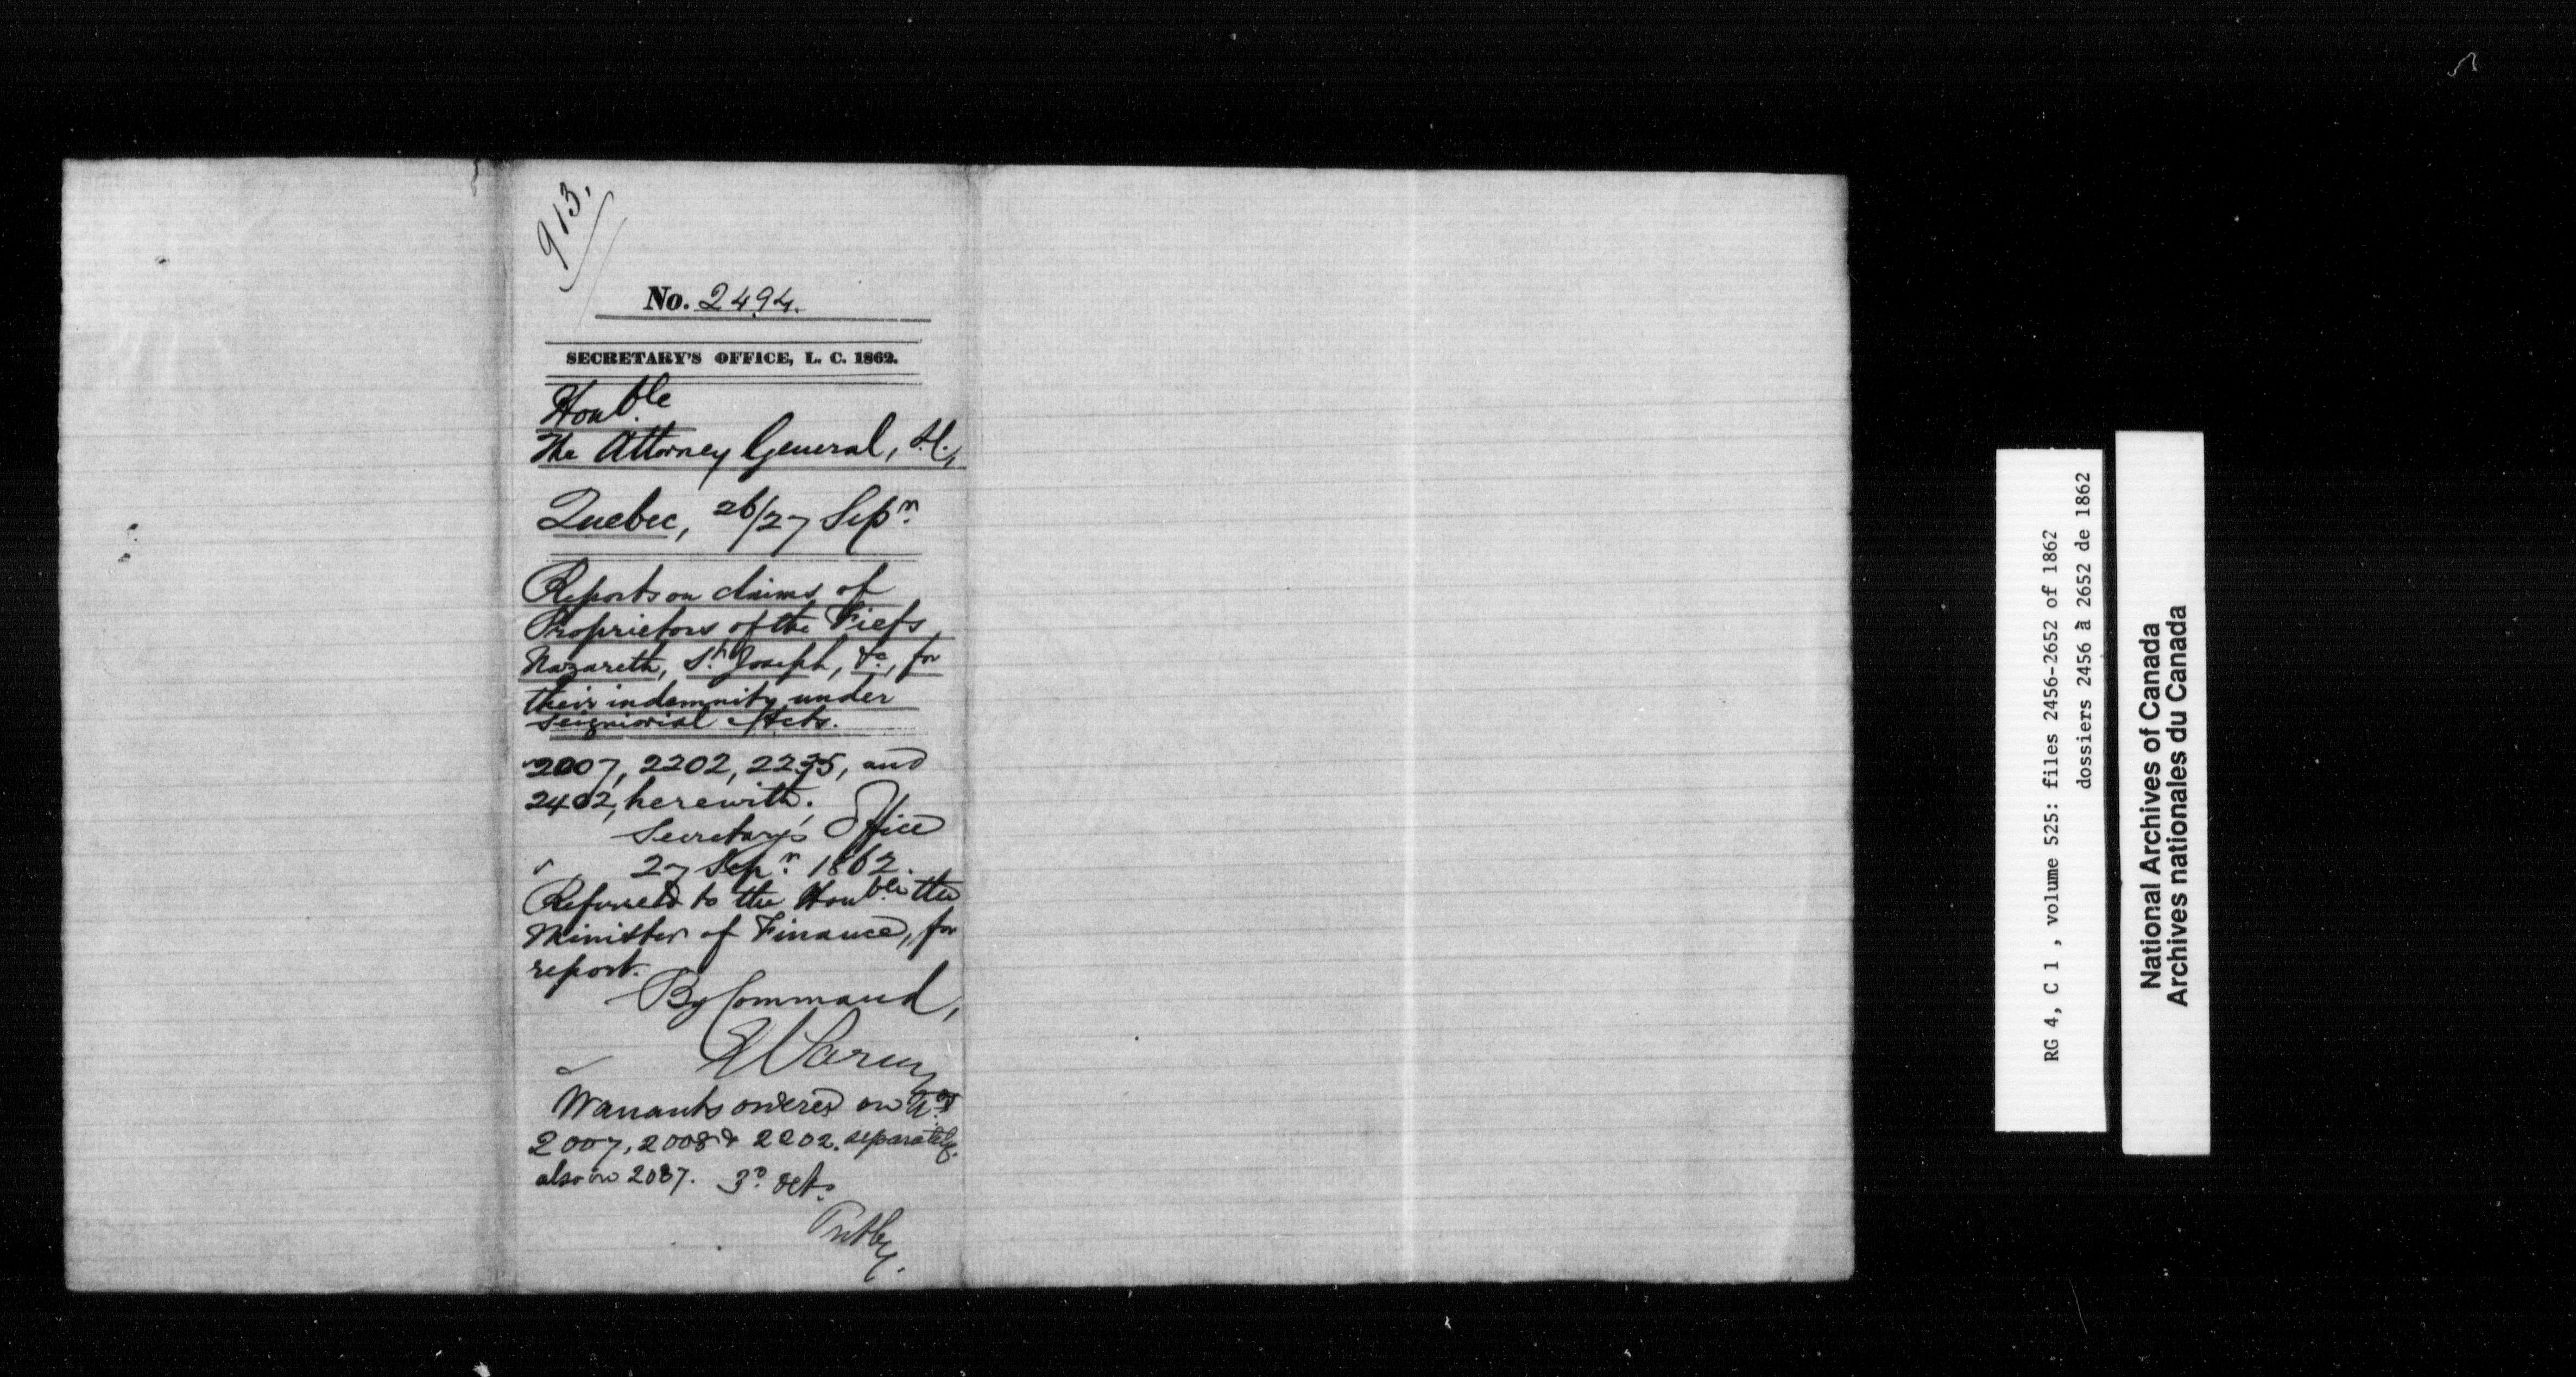 913.
No. 2494.
SECRETARY'S OFFICE, L. C. 1862.
Honble
The Attorney General, L.C.,
Quebec, 26/27 Sepr.
Reports on claims of
Proprietors of the Fiefs
Nazareth, St. Joseph, &c., for
their indemnity under
Seigniorial Acts.
2007, 2202, 2235, and
2402, herewith.
Secretary's Office
27 Sepr. 1862.
Referred to the Honble the
Minister of Finance, for
report.
By Command,
Warrants ordered on
2007, 2008 & 2202. separately.
also on 2087. 3d. Oct.
RG 4, C 1, volume 525: files 2456-2652 of 1862
dossiers 2456 à 2652 de 1862
National Archives of Canada
Archives nationales du Canada